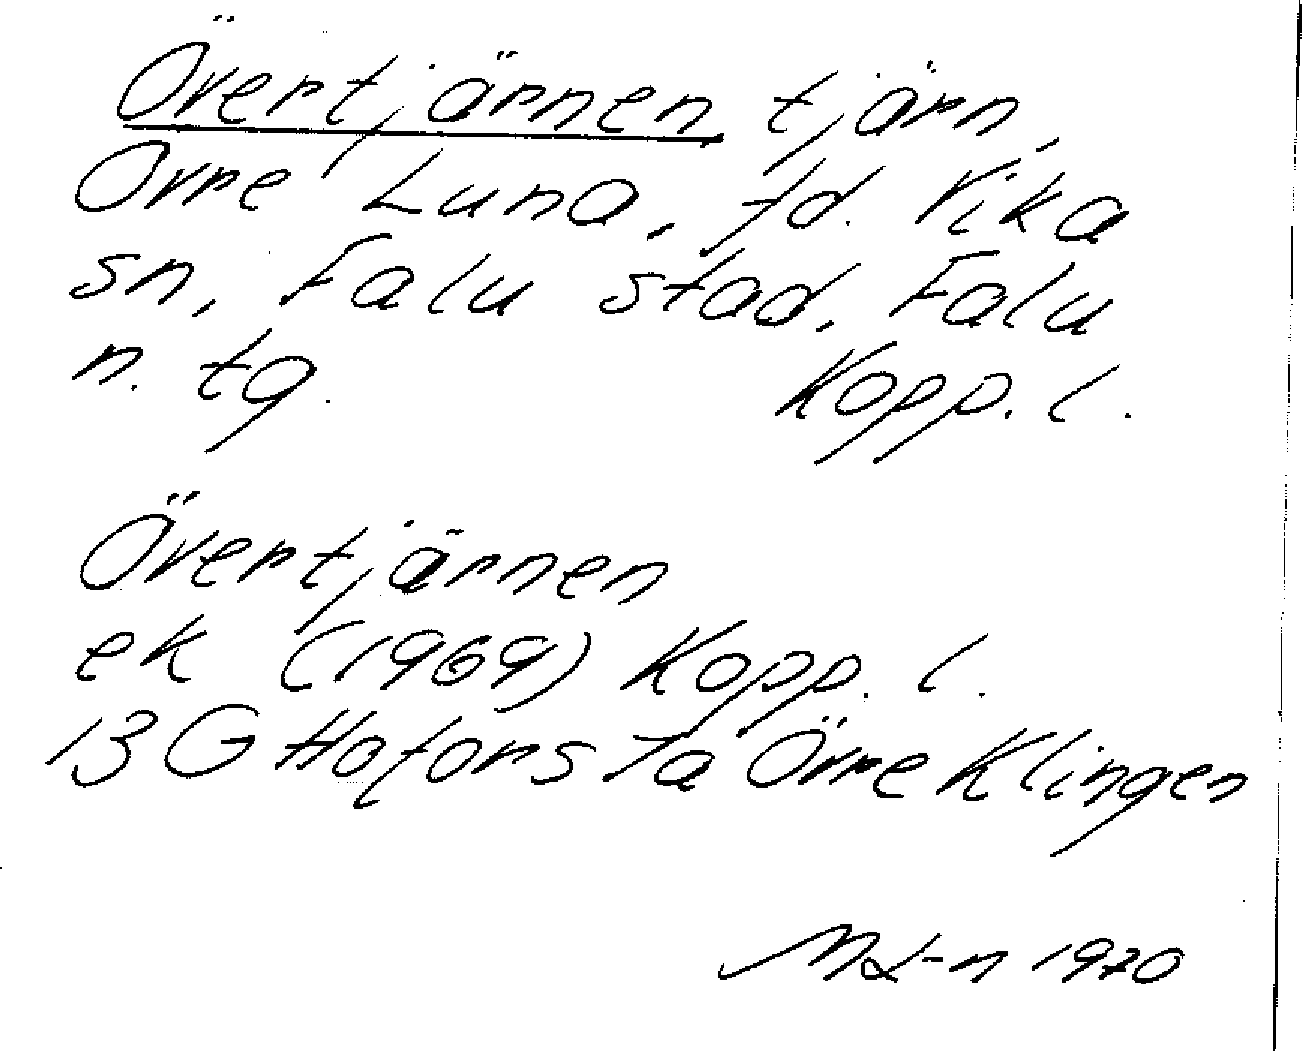 Övertjärnen tjärn,
Övre Luna, fd. Vika
sn, Falu stad, Falu
n. tg. Kopp. l.
Övertjärnen
ek (1969) Kopp. l.
13 G Hofors 7a Övre Klingen
1970